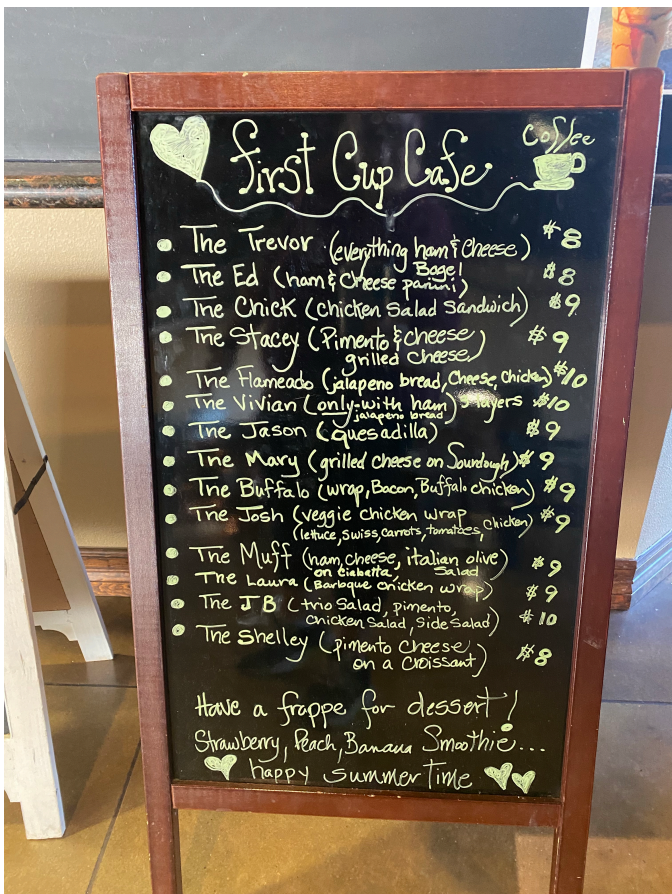 Coffee
First Cup Cafe
The Trevor (everything ham & cheese) $8
Bagel
The Ed (ham & cheese panini) $8
The Chick (chicken Salad Sandwich) $9
The Stacey (Pimento & cheese $9
grilled cheese)
The Flameado (jalapeno bread, Cheese, Chicken) $10
The Vivian (only-with ham) 3 layers $10
jalapeno bread
The Jason (quesadilla) $9
The Mary (grilled cheese on Sourdough) $9
The Buffalo (wrap, Bacon, Buffalo chicken) $9
The Josh (veggie chicken wrap $9
(lettuce, swiss, carrots, tomatoes, Chicken)
The Muff (ham, cheese, italian olive) $9
on Ciabatta, Salad
The Laura (Barbque chicken wrap) $9
The JB (trio Salad, pimento, $10
chicken Salad, Side Salad)
The Shelley (pimento cheese $8
on a Croissant)
Have a frappe for dessert!
Strawberry, Peach, Banana Smoothie...
happy summer time